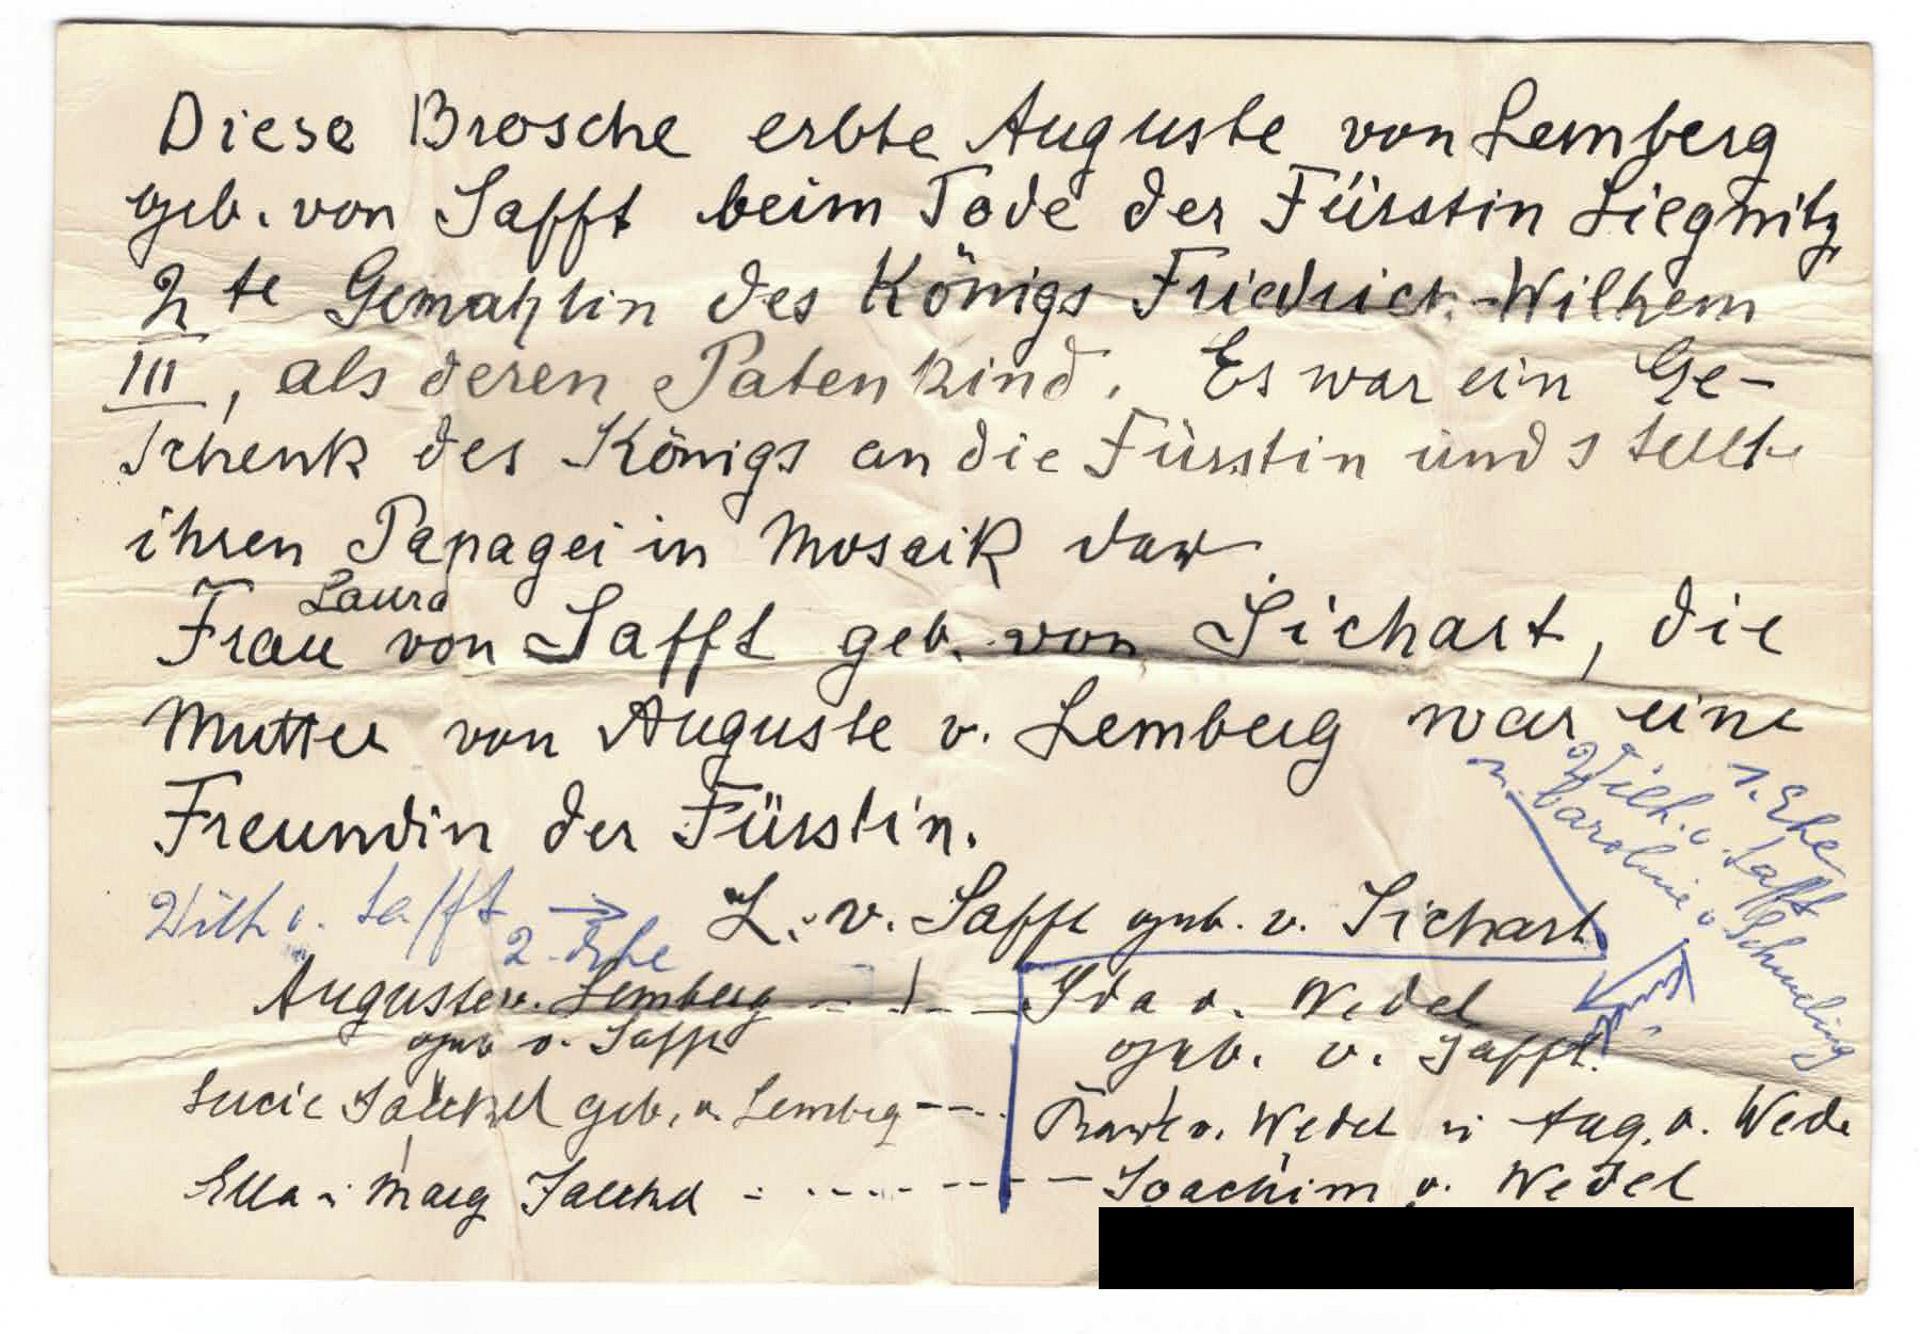 Diese Brosche erbte Auguste von Lemberg
geb. von Safft beim Tode der Fürstin Liegnitz
2te Gemahlin des Königs Friedrich-Wilhem
III, als deren Patenkind. Es war ein Ge-
schenk des Königs an die Fürstin und stellt
ihren Papagei in Mosaik dar
Laura
Frau von Safft geb. von Sichart, die
Mutter von Auguste v. Lemberg war eine
Freundin der Fürstin.
1. Ehe
Wilh. v. Safft
m. Caroline v Schmeling
Wilh v. Safft → L. v. Safft geb. v. Sichart
2. Ehe
Auguste v. Lemberg - - - Ida v. Wedel
geb v. Safft geb. v. Safft.
Lucie Jaeckel geb. v. Lemberg --- v. Wedel u Aug. v. Wede
Ella u Marg Jaeckel - - - - - Joachim v. Wedel